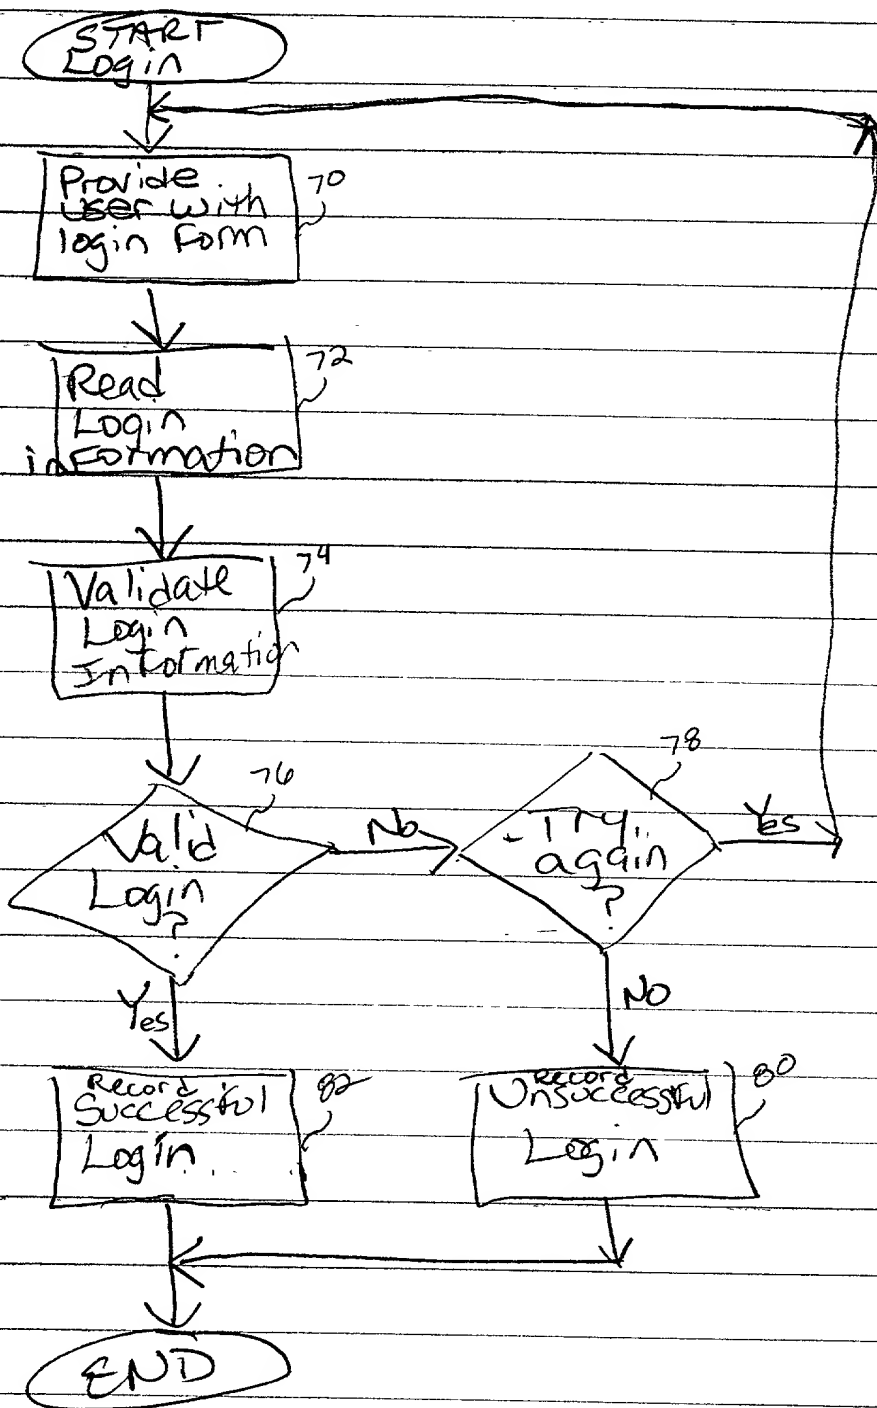 START
Login
Provide
user with
login Form
70
Read
Login
information
72
Validate
Login
Information
74
Valid
Login
?
76
No
Try
again
?
78
Yes
Yes
No
Record
Successful
Login
82
Record
Unsuccessful
Login
80
END